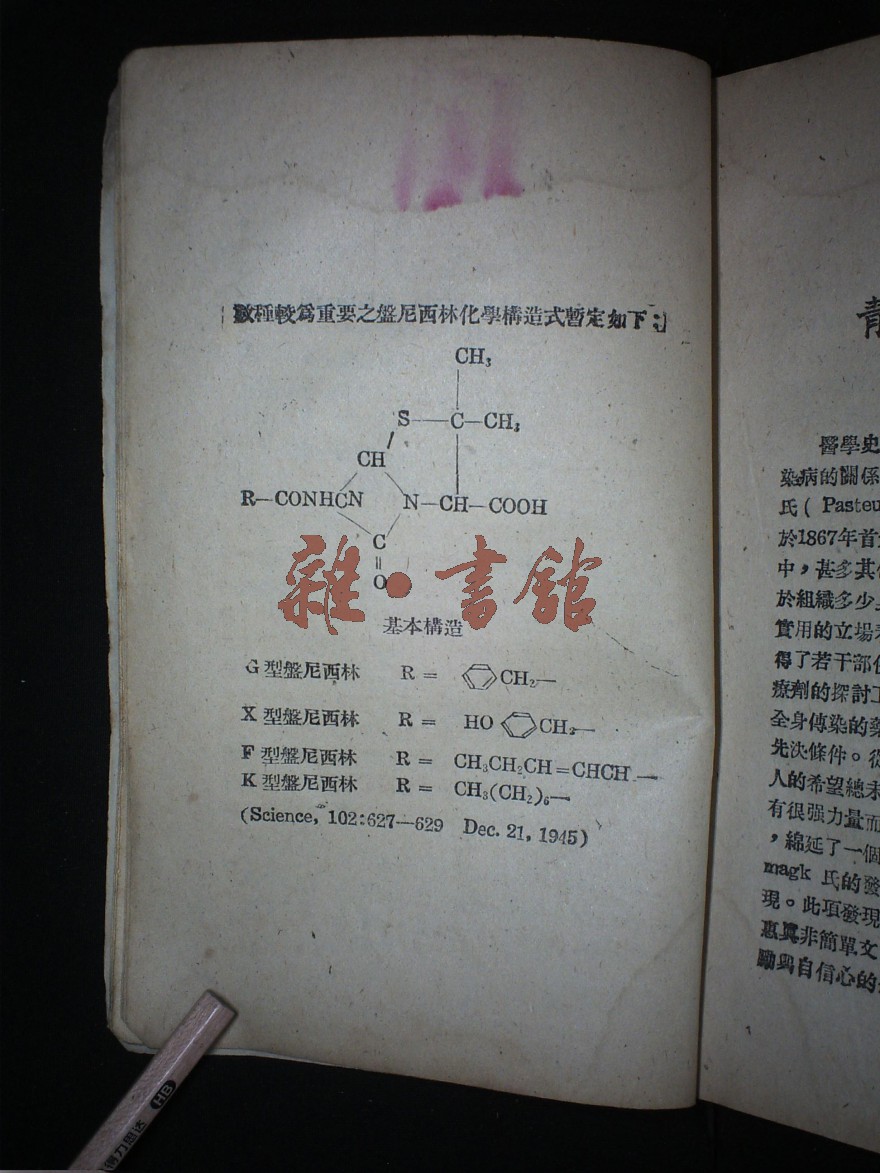 數種較爲重要之盤尼西林化學構造式暫定如下:
CH₃
S—C—CH₃
CH
R—CONHCN N—CH—COOH
C
O
雜·書館
基本構造
G 型盤尼西林 R = CH₂—
X 型盤尼西林 R = HO CH₂—
F 型盤尼西林 R = CH₃CH₂CH=CHCH—
K 型盤尼西林 R = CH₃(CH₂)₆—
(Science, 102:627—629 Dec. 21, 1945)
HB
得力思达
醫學史
染病的關係
氏( Pasteu
於1867年首
中，甚多其
於組織多少
實用的立場
得了若干部
療劑的探討
全身傳染的藥
先決條件。從
人的希望總未
有很强力量而
，綿延了一個
magk 氏的發
現。此項發現
惠眞非簡單文
勵與自信心的